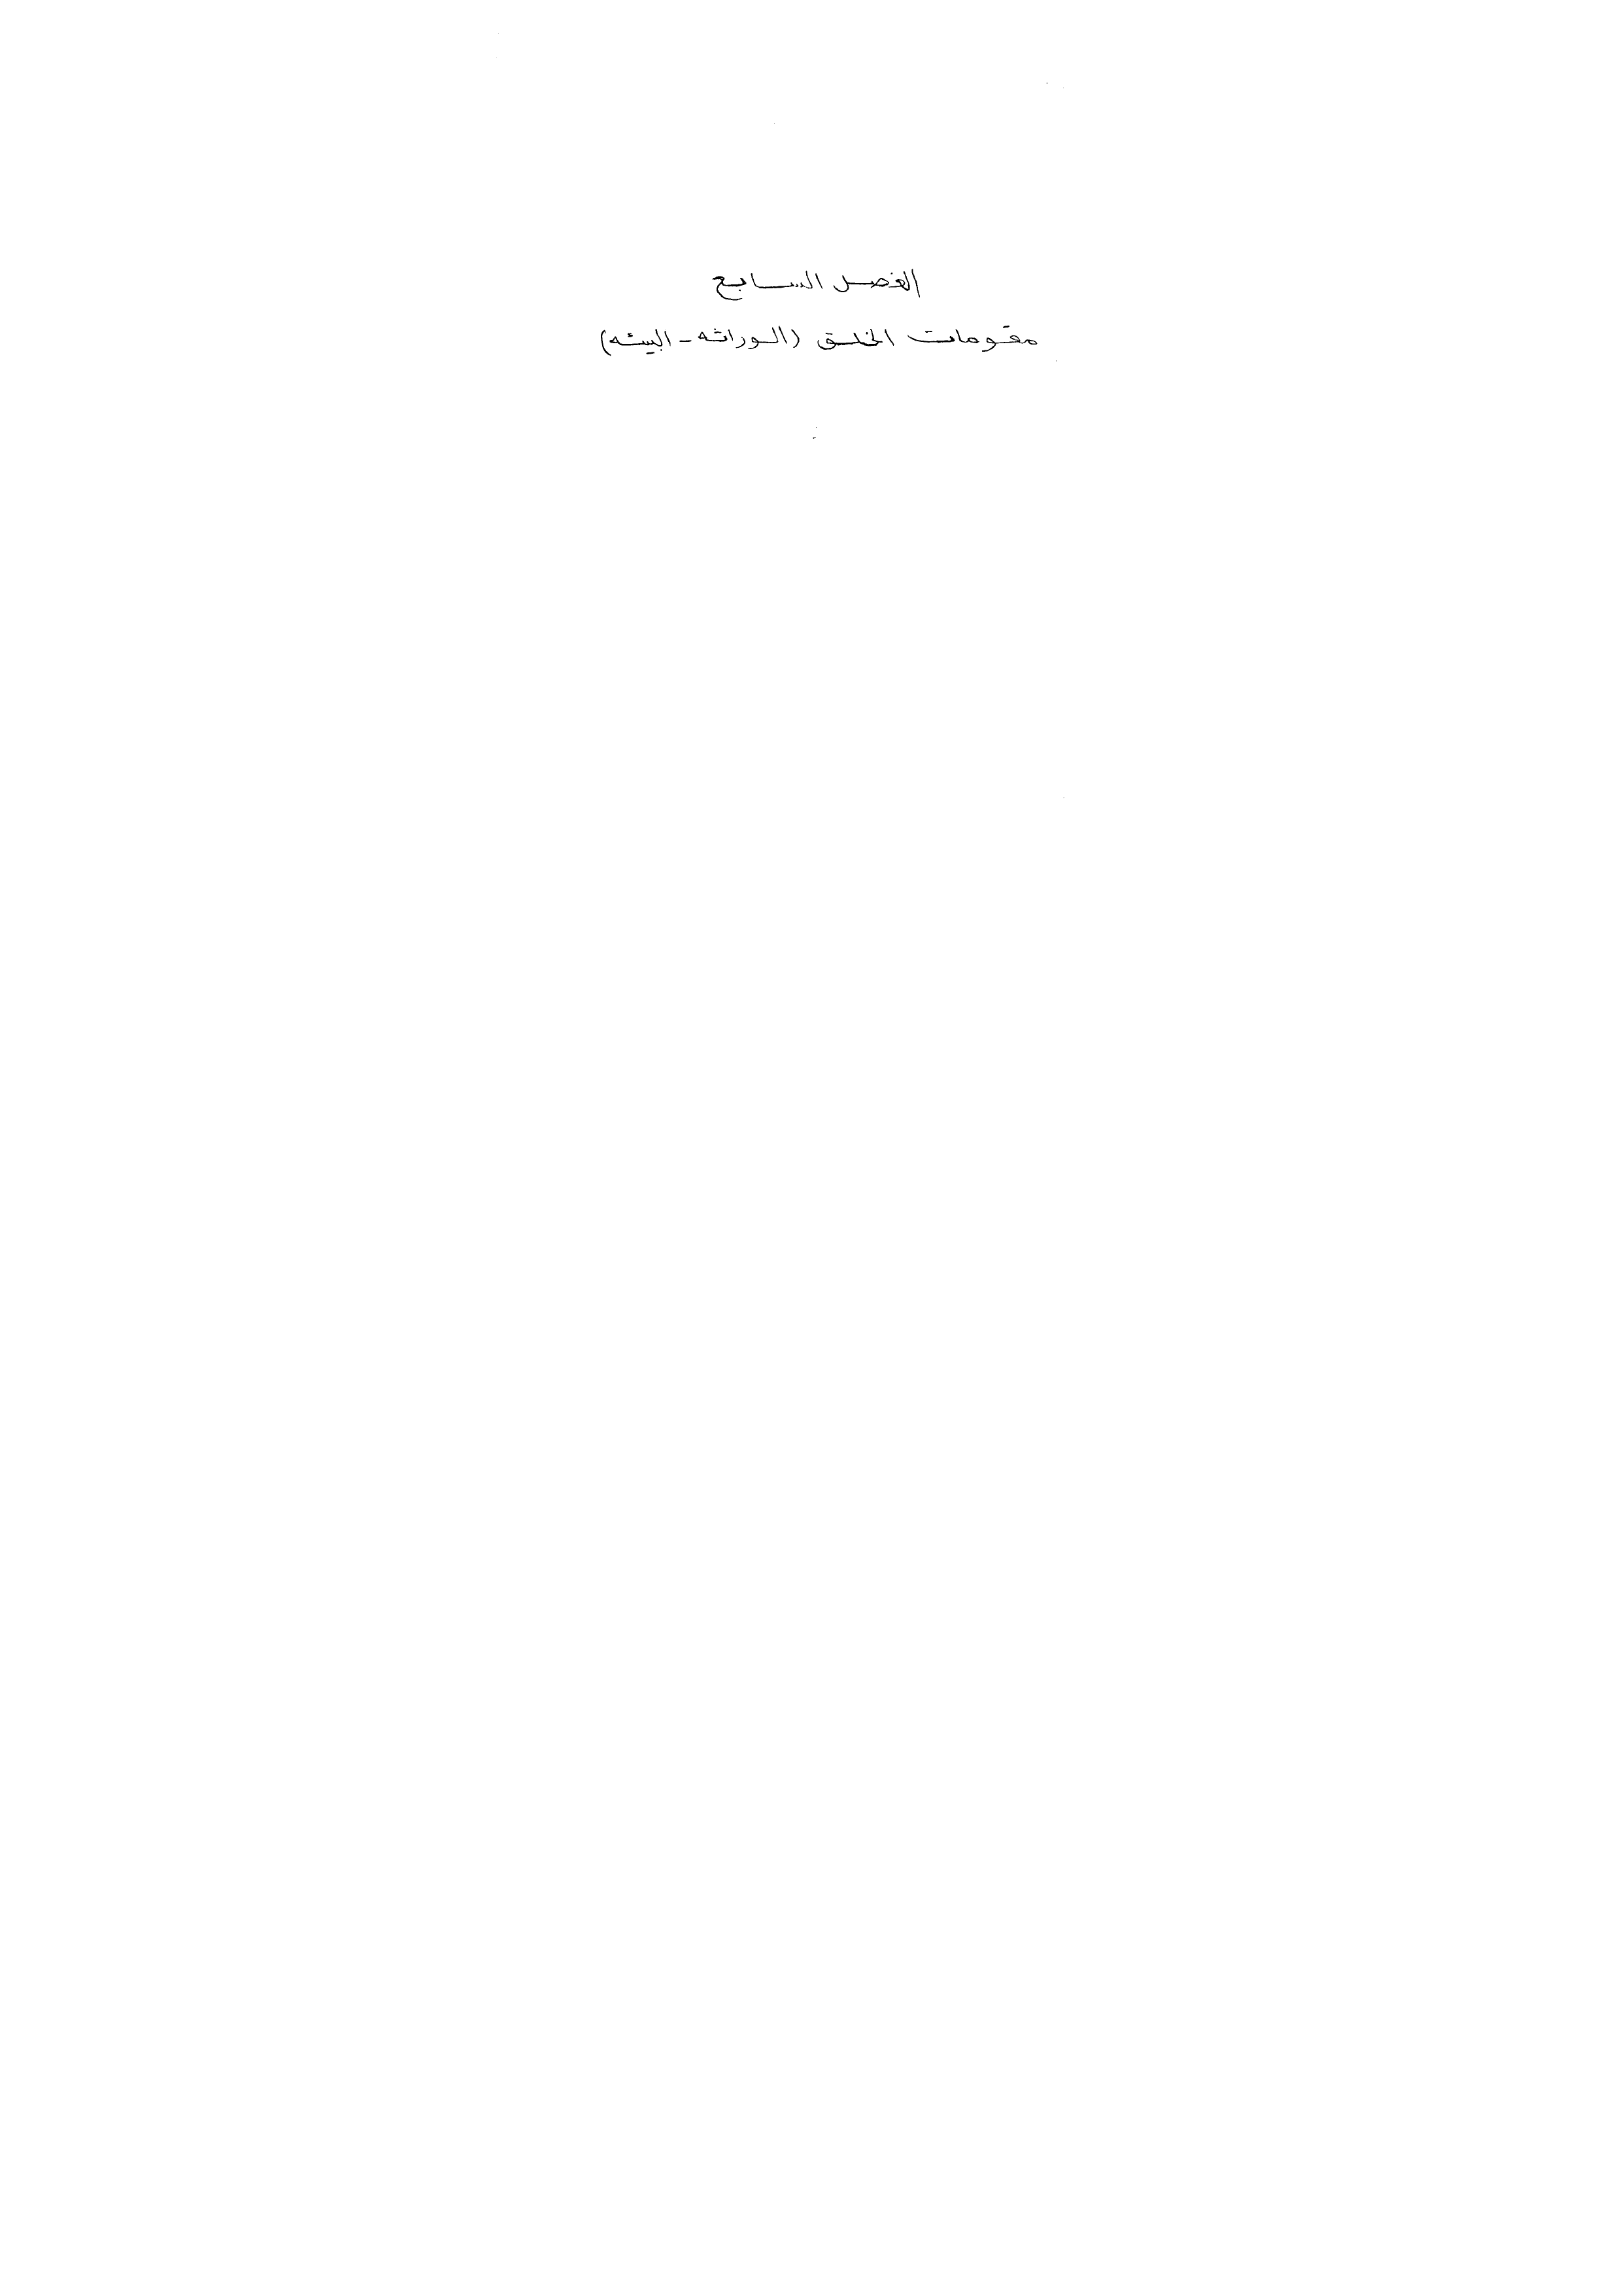 الفصل السابع
مقومات الخلق (الوراثه - البيئه)